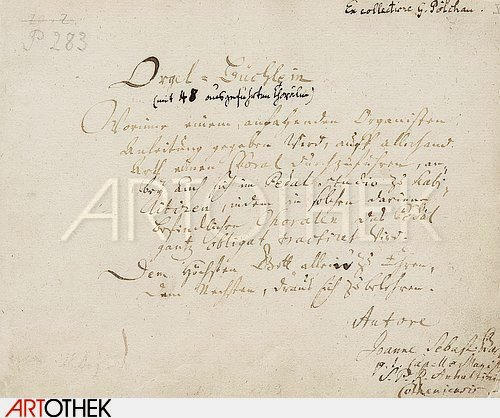 Ex collectione G. Pölchau.
P 283
Orgel-Büchlein
(mit 48 ausgeführten Chorälen)
Worinne einem anfahenden Organisten
Anleitung gegeben wird, auff allerhand
Arth einen Choral durchzuführen, an-
bey auch sich im Pedal studio zu habi-
litiren, indem in solchen darinne
befindlichen Choralen das Pedal
gantz obligat tractiret wird.
Dem Höchsten Gott allein zu Ehren,
Dem Nechsten, draus sich zu belehren.
Autore
Joanne Sebast. Bach
p. t. Capellae Magistri
S. P. R. Anhaltini-
Cotheniensis.
ARTOTHEK
ARTOTHEK